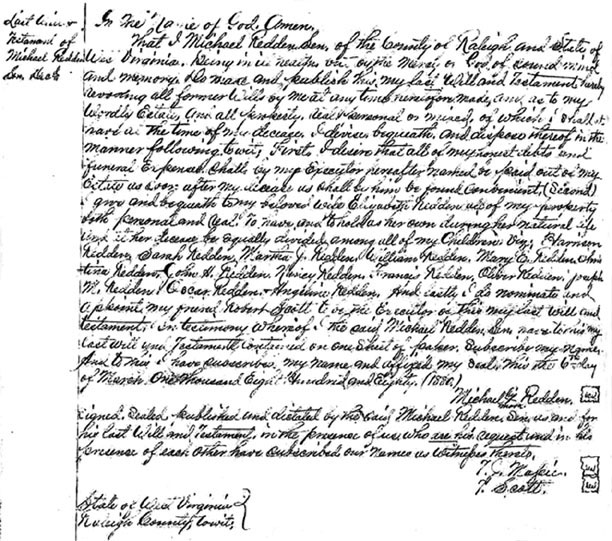 Last Will &
Testament of
Michael Redden
Sen. Decd
In the name of God, Amen,
That I Michael Redden, Sen. of the County of Raleigh and State of
West Virginia, being in health by the Mercy of God, of sound mind
and memory, do make and publish this my last Will and Testament, hereby
revoking all former Wills by me at any time heretofore made, And as to my
Wordly Estate, and all property, real personal or mixed, of which I shall
at the time of my decease, I devise, bequeath, and dispose thereof in the
manner following, towit, First, I desire that all of my honest debts and
funeral Expenses shall by my Executor hereafter named be paid out of my
Estate as soon after my decease as shall by him be found Convenient, (Second)
I give and bequeath to my beloved wife Elizabeth Redden all of my property
both personal and real to have, and to hold as her own during her natural life
and at her decease be equally divided among all of my Children, Viz; Harrison
Redden, Sarah Redden, Martha J. Redden, William Redden, Mary E. Redden,
Redden, John A. Redden, Nancy Redden, Francis Redden, Oliver Redden, Joseph
M. Redden, Oscar Redden & Redden, And lastly I do nominate and
appoint my friend Robert Scott to be the Executor of this my last Will and
testament, in testimony whereof I the said Michael Redden, Sen. have to this my
last Will and Testament, contained on one Sheet of paper, Subscribe my name,
And to this I have subscribed my name and affixed my Seal, this the 6th day
of March, One thousand Eight Hundred and Eighty, (1880.)
Michael Redden
signed, Sealed published and dictated by the said Michael Redden, Sen. as and for
his last Will and Testament, in the presence of us, who at his request and in his
presence of each other have subscribed our Names as Witness thereto.
T. J.
T. Scott.
State of West Virginia
Raleigh County, towit,